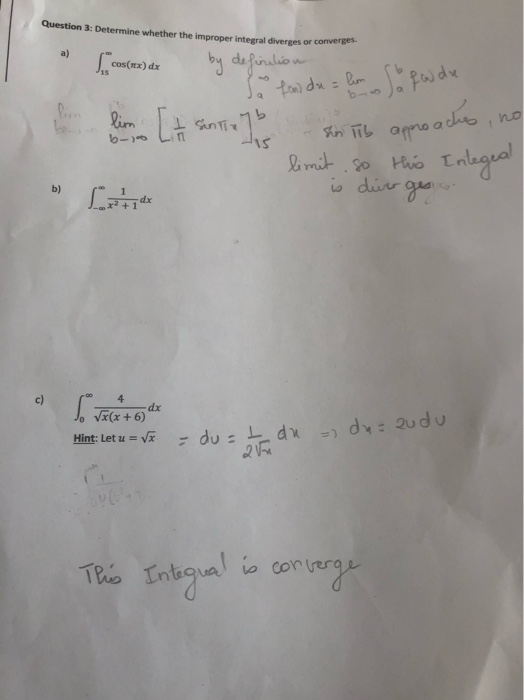 Question 3: Determine whether the improper integral diverges or converges.
a) ∫₁₅^∞ cos(πx) dx
by definition
∫ₐ^∞ f(x) dx = lim b→∞ ∫ₐ^b f(x) dx
lim b→∞ [1/π sin πx]₁₅^b
sin πb approaches, no
limit. so this Integral
is diverges.
b) ∫₋∞^∞ 1/(x² + 1) dx
c) ∫₀^∞ 4/(√x(x + 6)) dx
Hint: Let u = √x = du = 1/(2√x) dx => dx = 2u du
This Integral is converge